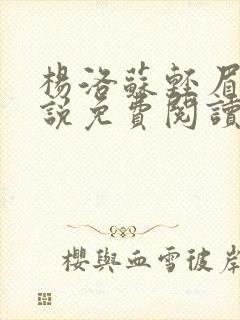 楊洛蘇輕眉
說免費閱讀
櫻與血雪彼岸